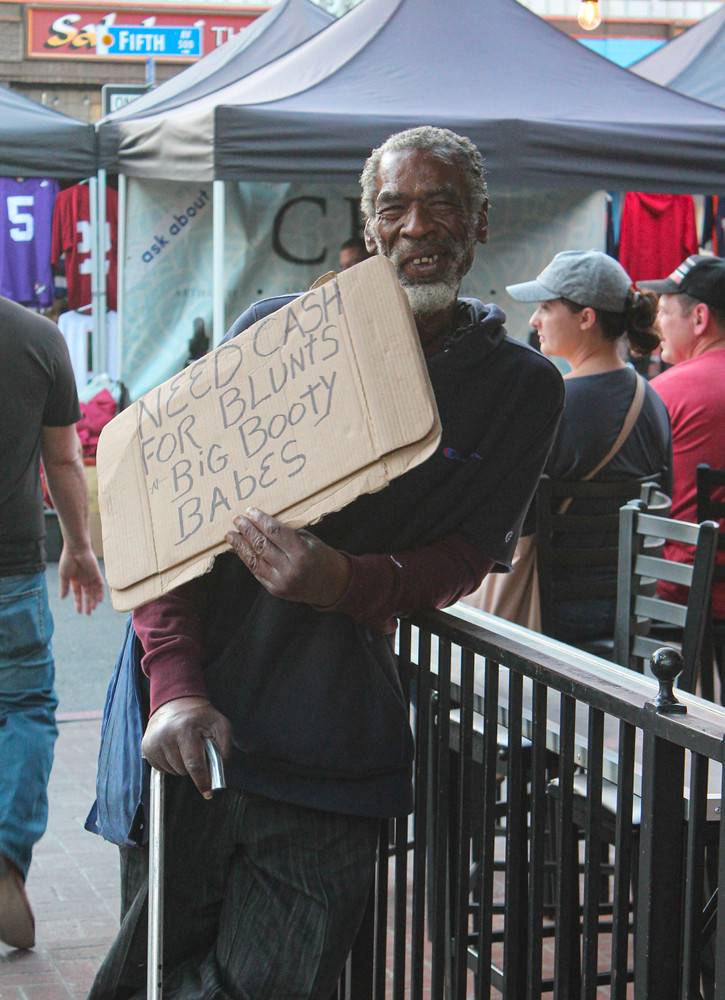 FIFTH AV
500
ask about
5
NEED CASH
FOR BLUNTS
N BIG BOOTY
BABES